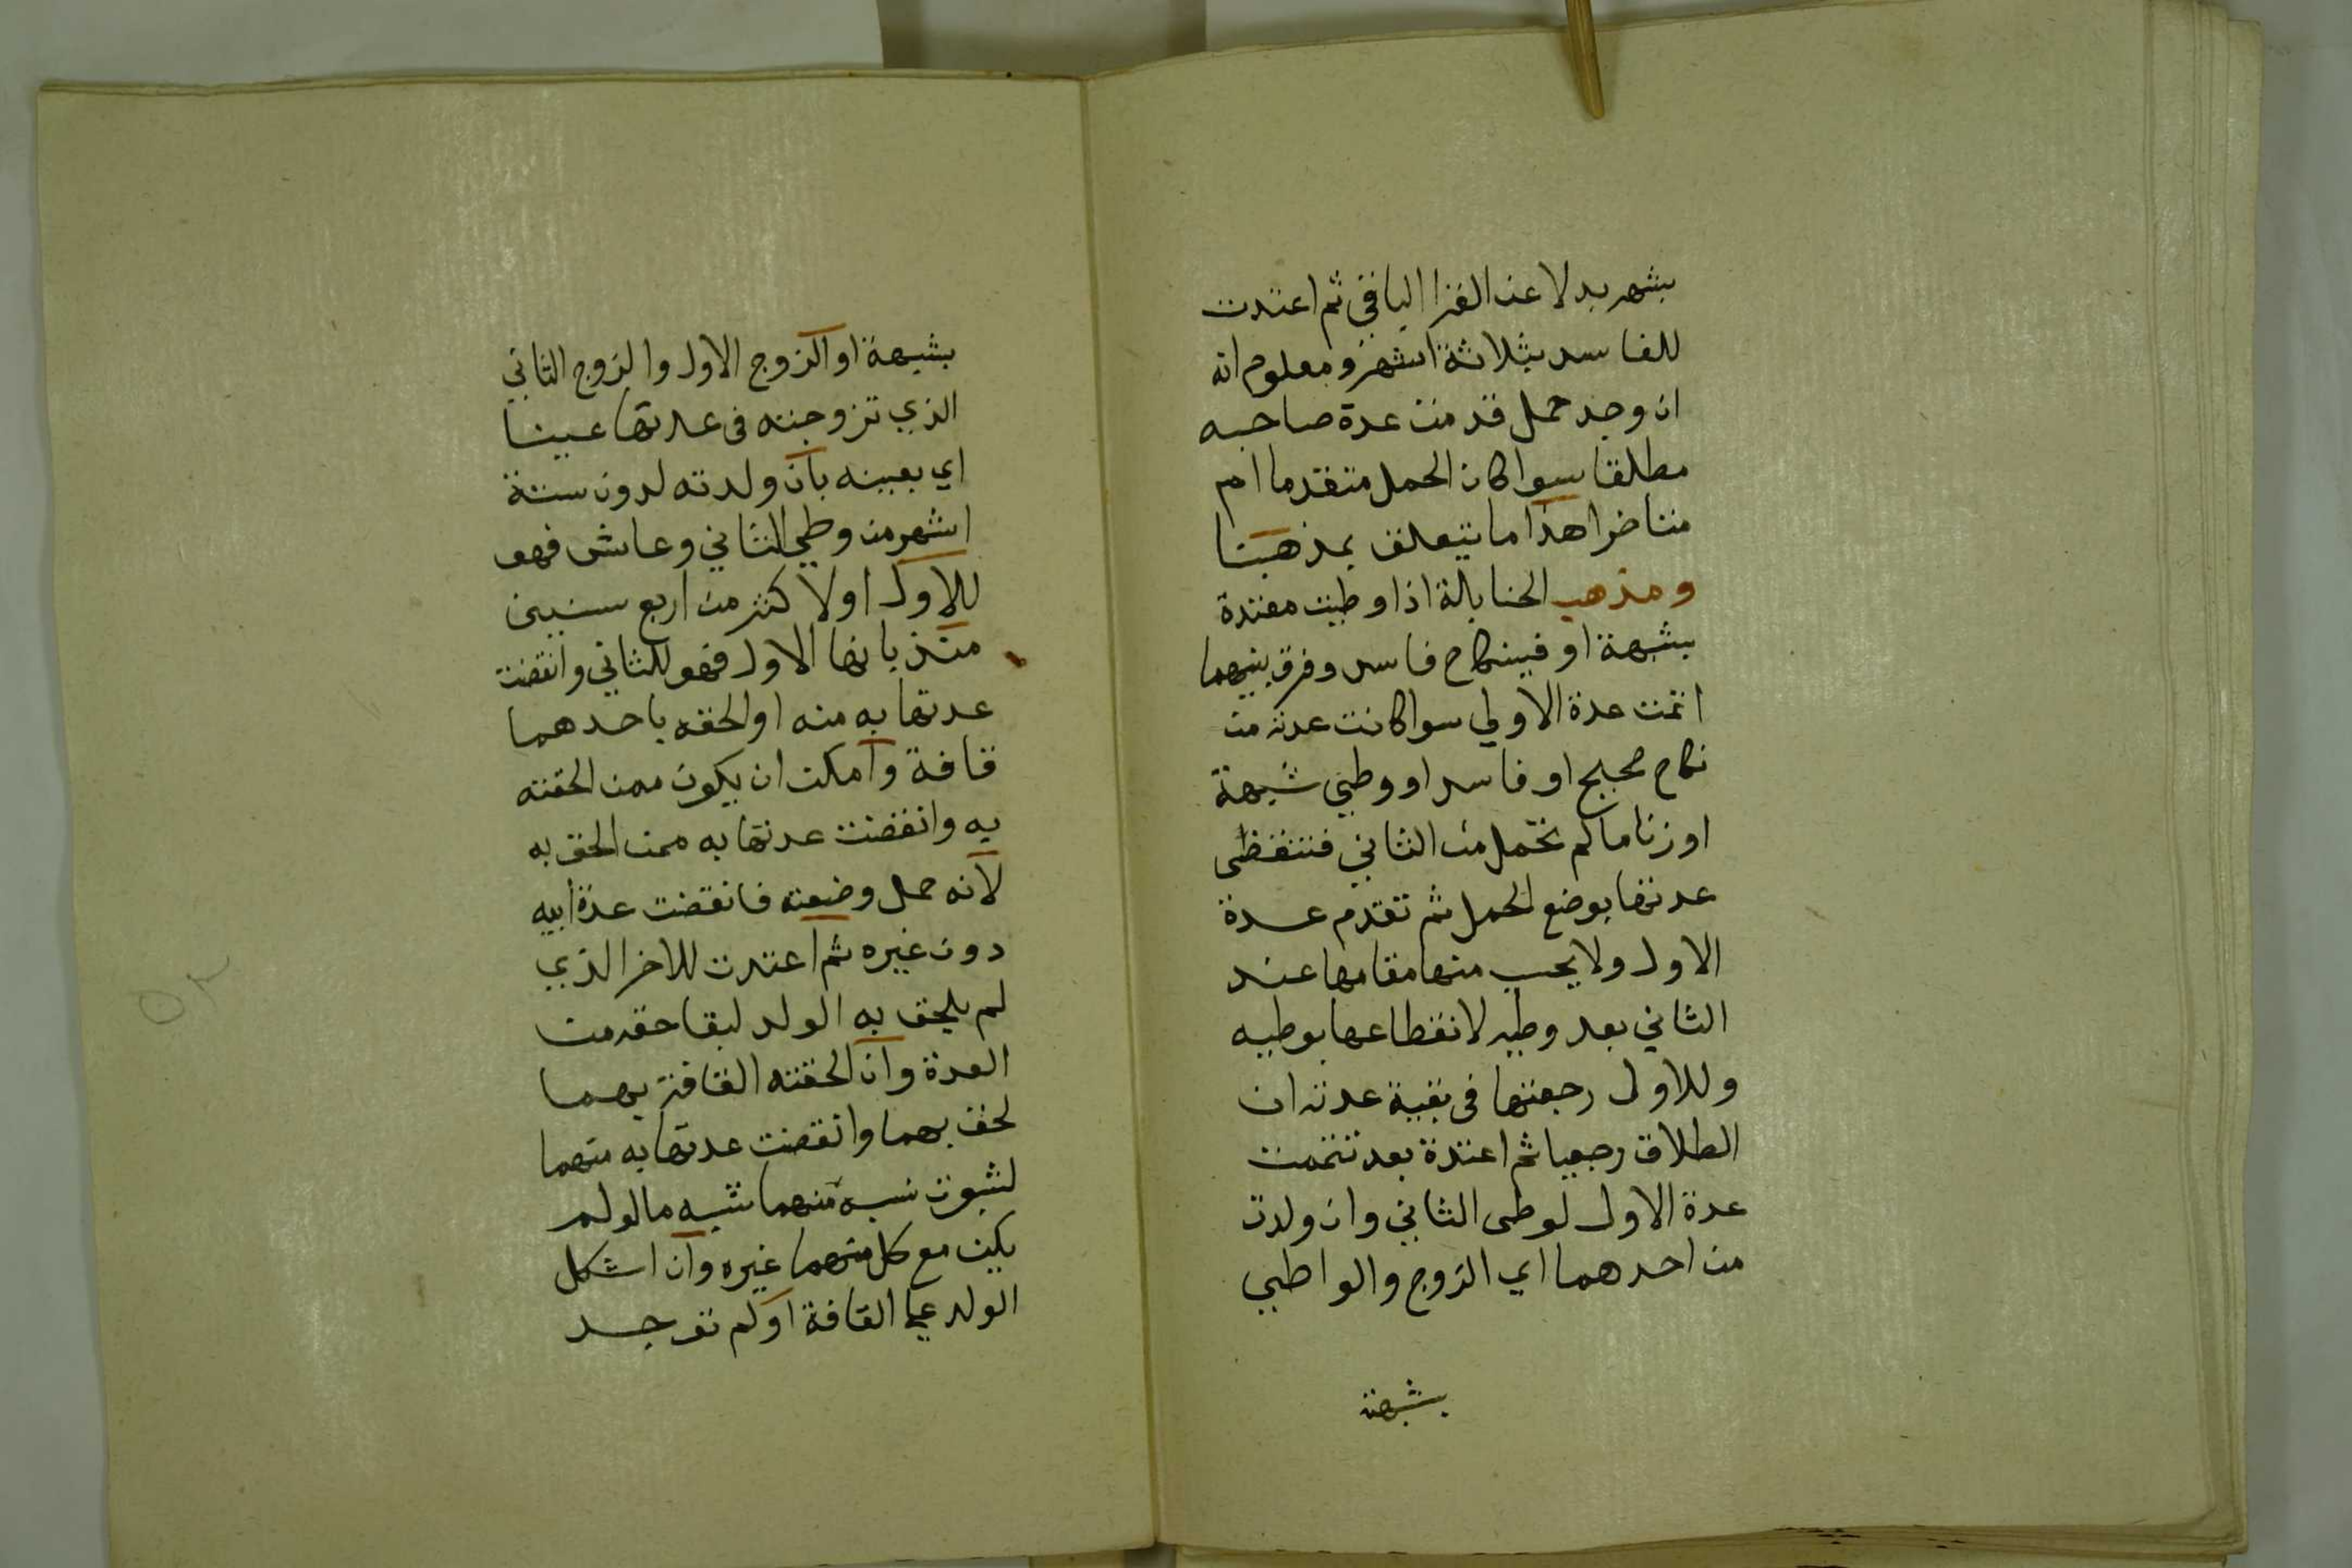 بشهر بدلا عن القرا الباقي ثم اعتدت
للفاسد بثلاثة اشهر ومعلوم انه
ان وجد حمل قدمت عدة صاحبه
مطلقا سوا كان الحمل متقدما ام
متاخرا هذا ما يتعلق بمذهبنا
ومذهب الحنابلة اذا وطيت معتدة
بشبهة او فينكاح فاسد وفرق بينهما
اتمت عدة الاولي سوا كانت عدته من
نكاح صحيح او فاسد او وطيي شبهة
او زنا ما لم تحمل من الثاني فتنقظى
عدتها بوضع الحمل ثم تقدم عدة
الاول ولا يحسب منها مقامها عند
الثاني بعد وطيه لانقطاعها بوطيه
وللاول رجعتها فى بقية عدته ان
الطلاق رجعيا ثم اعتدة بعد تتمت
عدة الاول لوطى الثاني وان ولدت
من احدهما اي الزوج والواطيي
بشبهة
بشبهة او الزوج الاول والزوج الثاني
الذي تزوجته فى عدتها عينا
اي بعينه بان ولدته لدون ستة
اشهر من وطي الثاني وعاش فهو
للاول او لاكثر من اربع سنين
منذ بانها الاول فهو للثاني وانقضت
عدتها به منه او الحقه باحدهما
قافة وامكن ان يكون ممن الحقته
به وانقضت عدتها به ممن الحق به
لانه حمل وضعته فانقضت عدة ابيه
دون غيره ثم اعتدت للاخر الذي
لم يلحق به الولد لبقا حقه من
العدة وان الحقته القافة بهما
لحق بهما وانقضت عدتها به منهما
لثبوت نسبه منهما شبه ما لو لم
يكن مع كل منهما غيره وان اشكل
الولد علي القافة او لم توجد